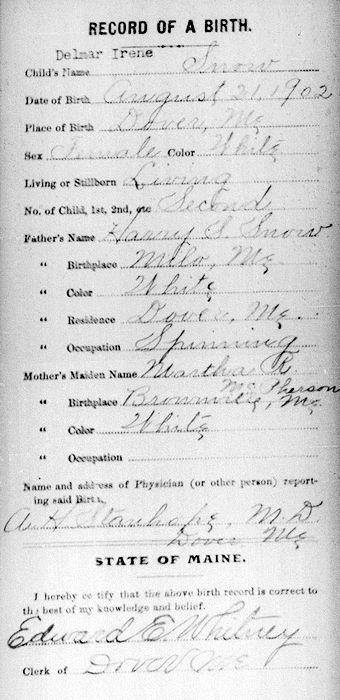 RECORD OF A BIRTH.
Delmar Irene
Child's Name Snow
Date of Birth August 21, 1902
Place of Birth Dover, Me
Sex Female Color White
Living or Stillborn Living
No. of Child, 1st, 2nd, etc Second
Father's Name Harry S. Snow
" Birthplace Milo, Me
" Color White
" Residence Dover, Me.
" Occupation Spinning
Mother's Maiden Name Martha R.
McPherson
" Birthplace Brownville, Me
" Color White
" Occupation
Name and address of Physician (or other person) report-
ing said Birth,
A. H. Stanhope, M. D.
Dover Me
STATE OF MAINE.
I hereby certify that the above birth record is correct to
the best of my knowledge and belief.
Edward E. Whitney
Clerk of Dover Me